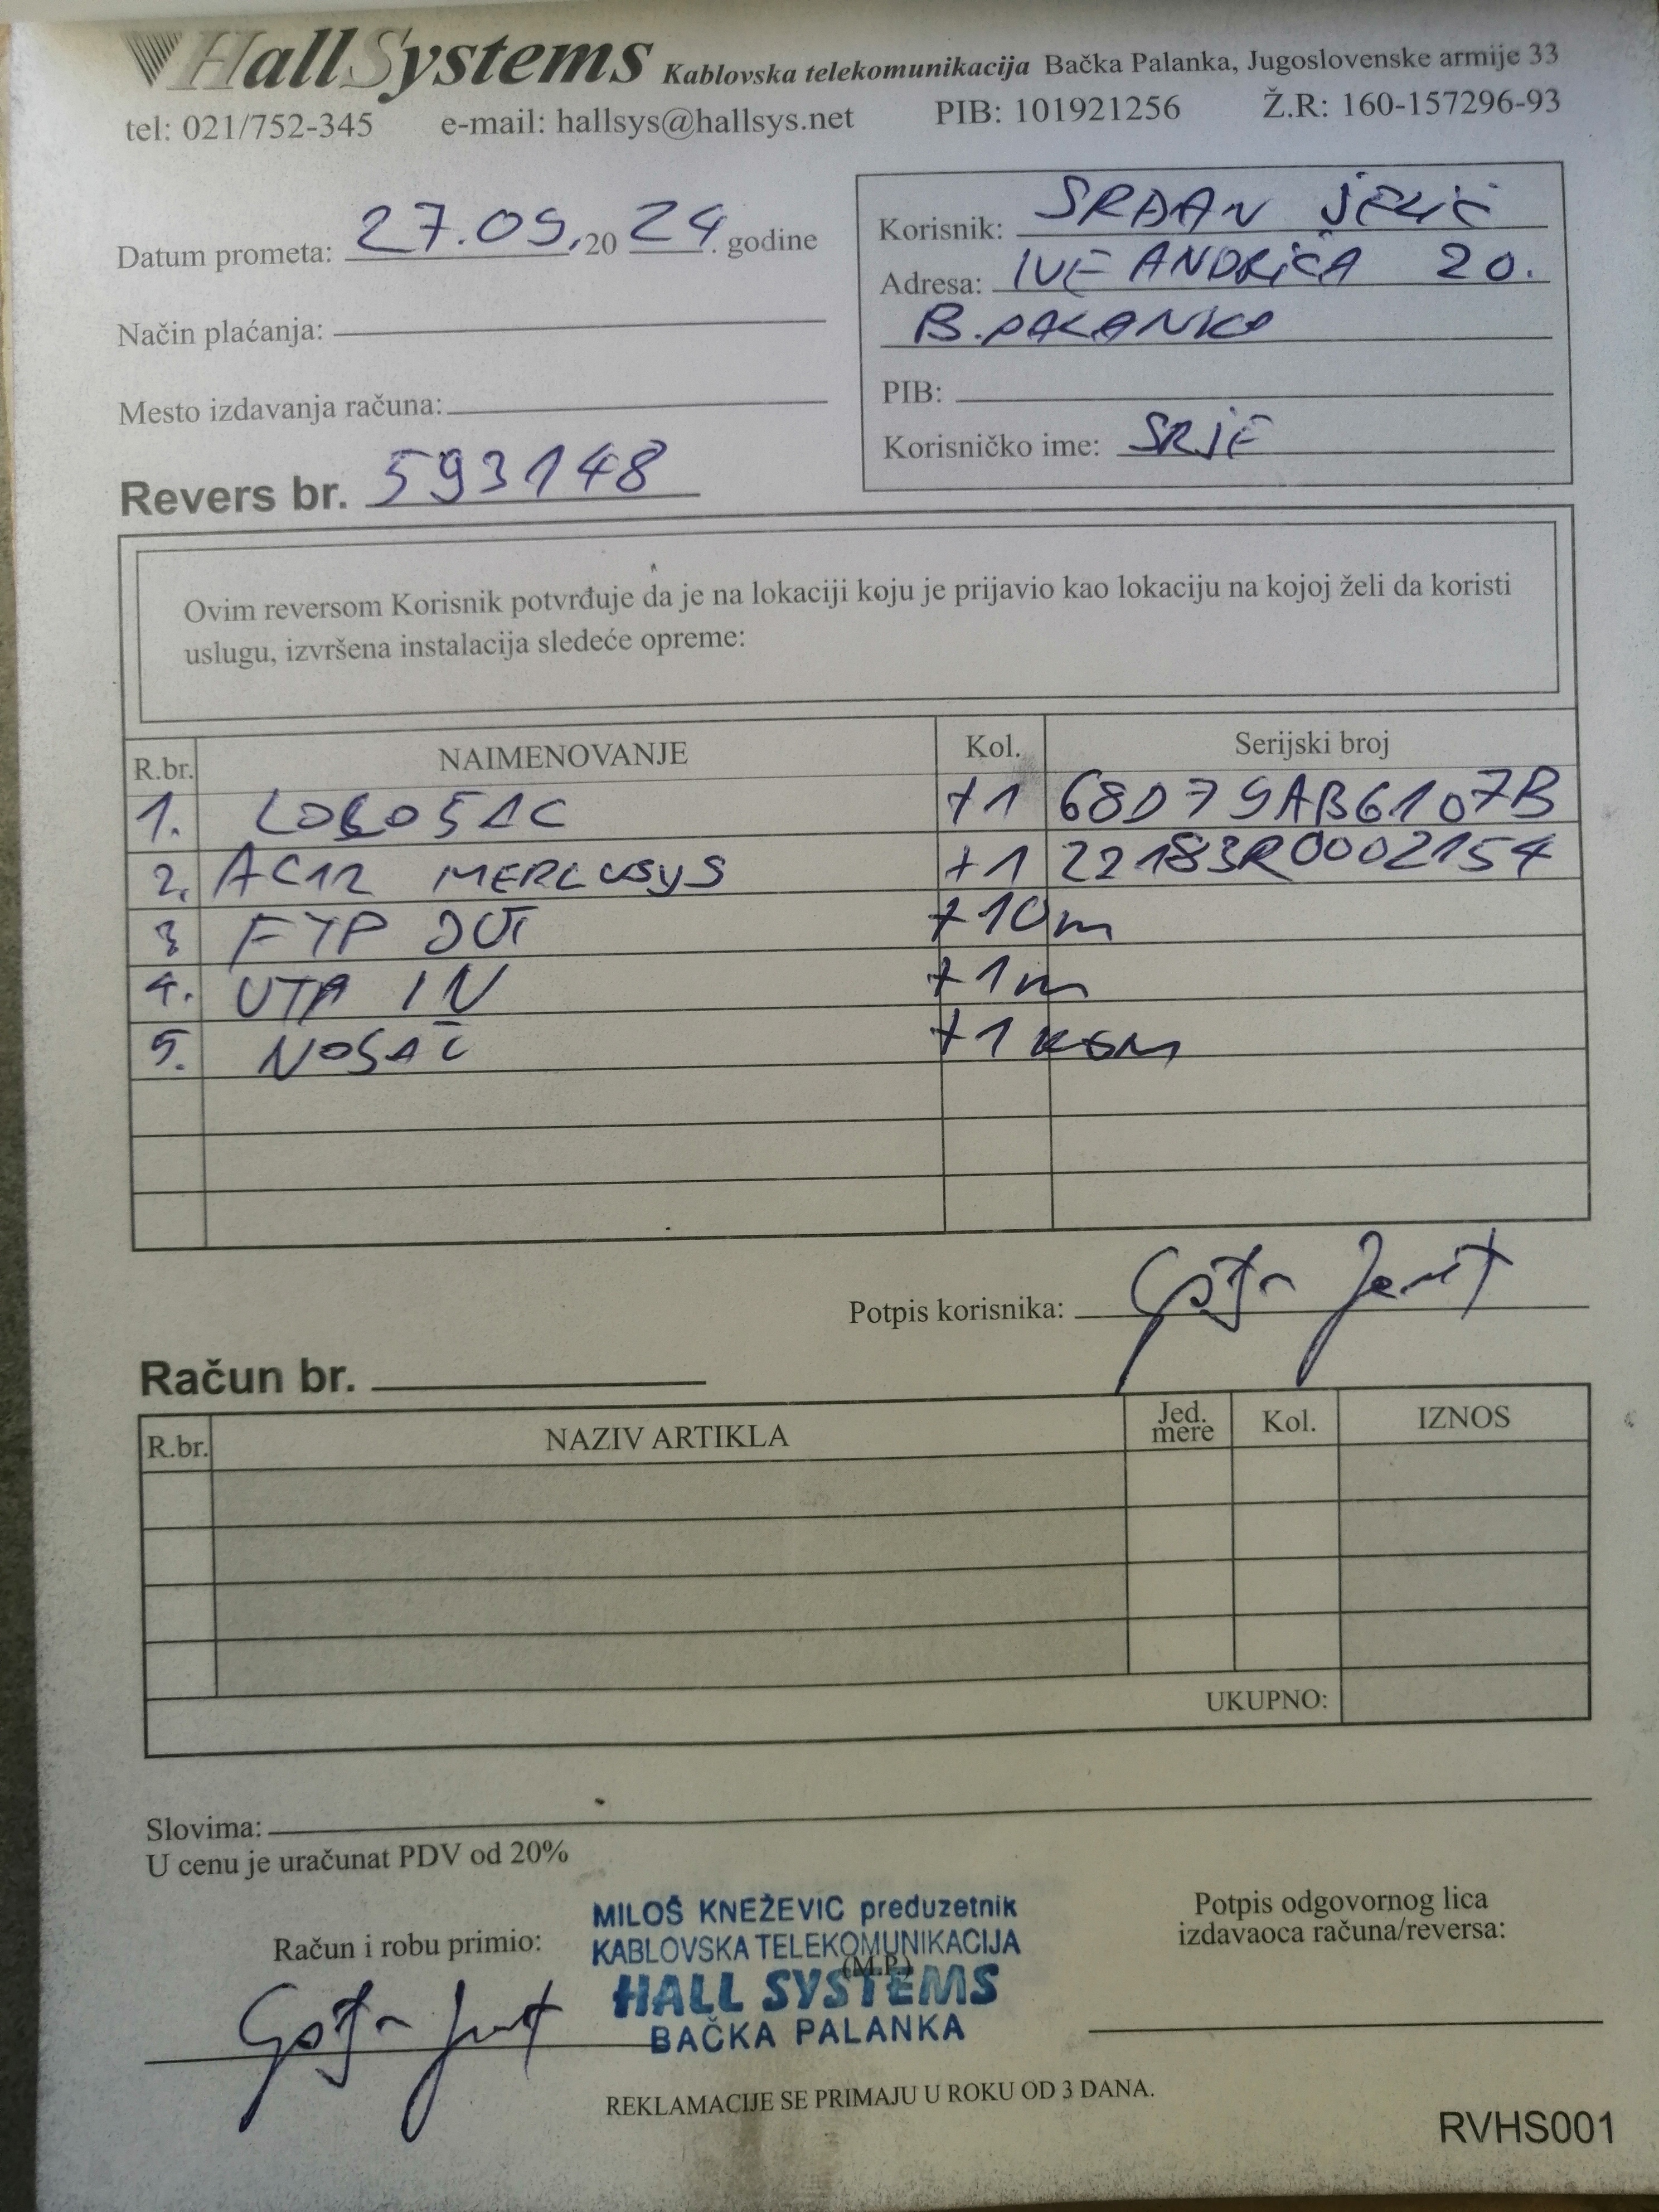 HallSystems Kablovska telekomunikacija Bačka Palanka, Jugoslovenske armije 33
tel: 021/752-345 e-mail: hallsys@hallsys.net PIB: 101921256 Ž.R: 160-157296-93
Datum prometa: 27.09.2024. godine
Način plaćanja:
Mesto izdavanja računa:
Revers br. 593148
Korisnik: SRĐAN JELIĆ
Adresa: IVE ANDRIĆA 20.
B.PALANKA
PIB:
Korisničko ime: SRJE
Ovim reversom Korisnik potvrđuje da je na lokaciji koju je prijavio kao lokaciju na kojoj želi da koristi
uslugu, izvršena instalacija sledeće opreme:
R.br. NAIMENOVANJE Kol. Serijski broj
1. LOCO5AC +1 68D79AB6107B
2. AC12 MERCUSYS +1 22183R0002154
3 FTP OUT +10m
4. UTP IN +1m
5. NOSAČ +1 KOM
Potpis korisnika:
Račun br.
R.br. NAZIV ARTIKLA Jed. mere Kol. IZNOS
UKUPNO:
Slovima:
U cenu je uračunat PDV od 20%
Račun i robu primio:
MILOŠ KNEŽEVIĆ preduzetnik
KABLOVSKA TELEKOMUNIKACIJA
(M.P.)
HALL SYSTEMS
BAČKA PALANKA
Potpis odgovornog lica
izdavaoca računa/reversa:
REKLAMACIJE SE PRIMAJU U ROKU OD 3 DANA.
RVHS001